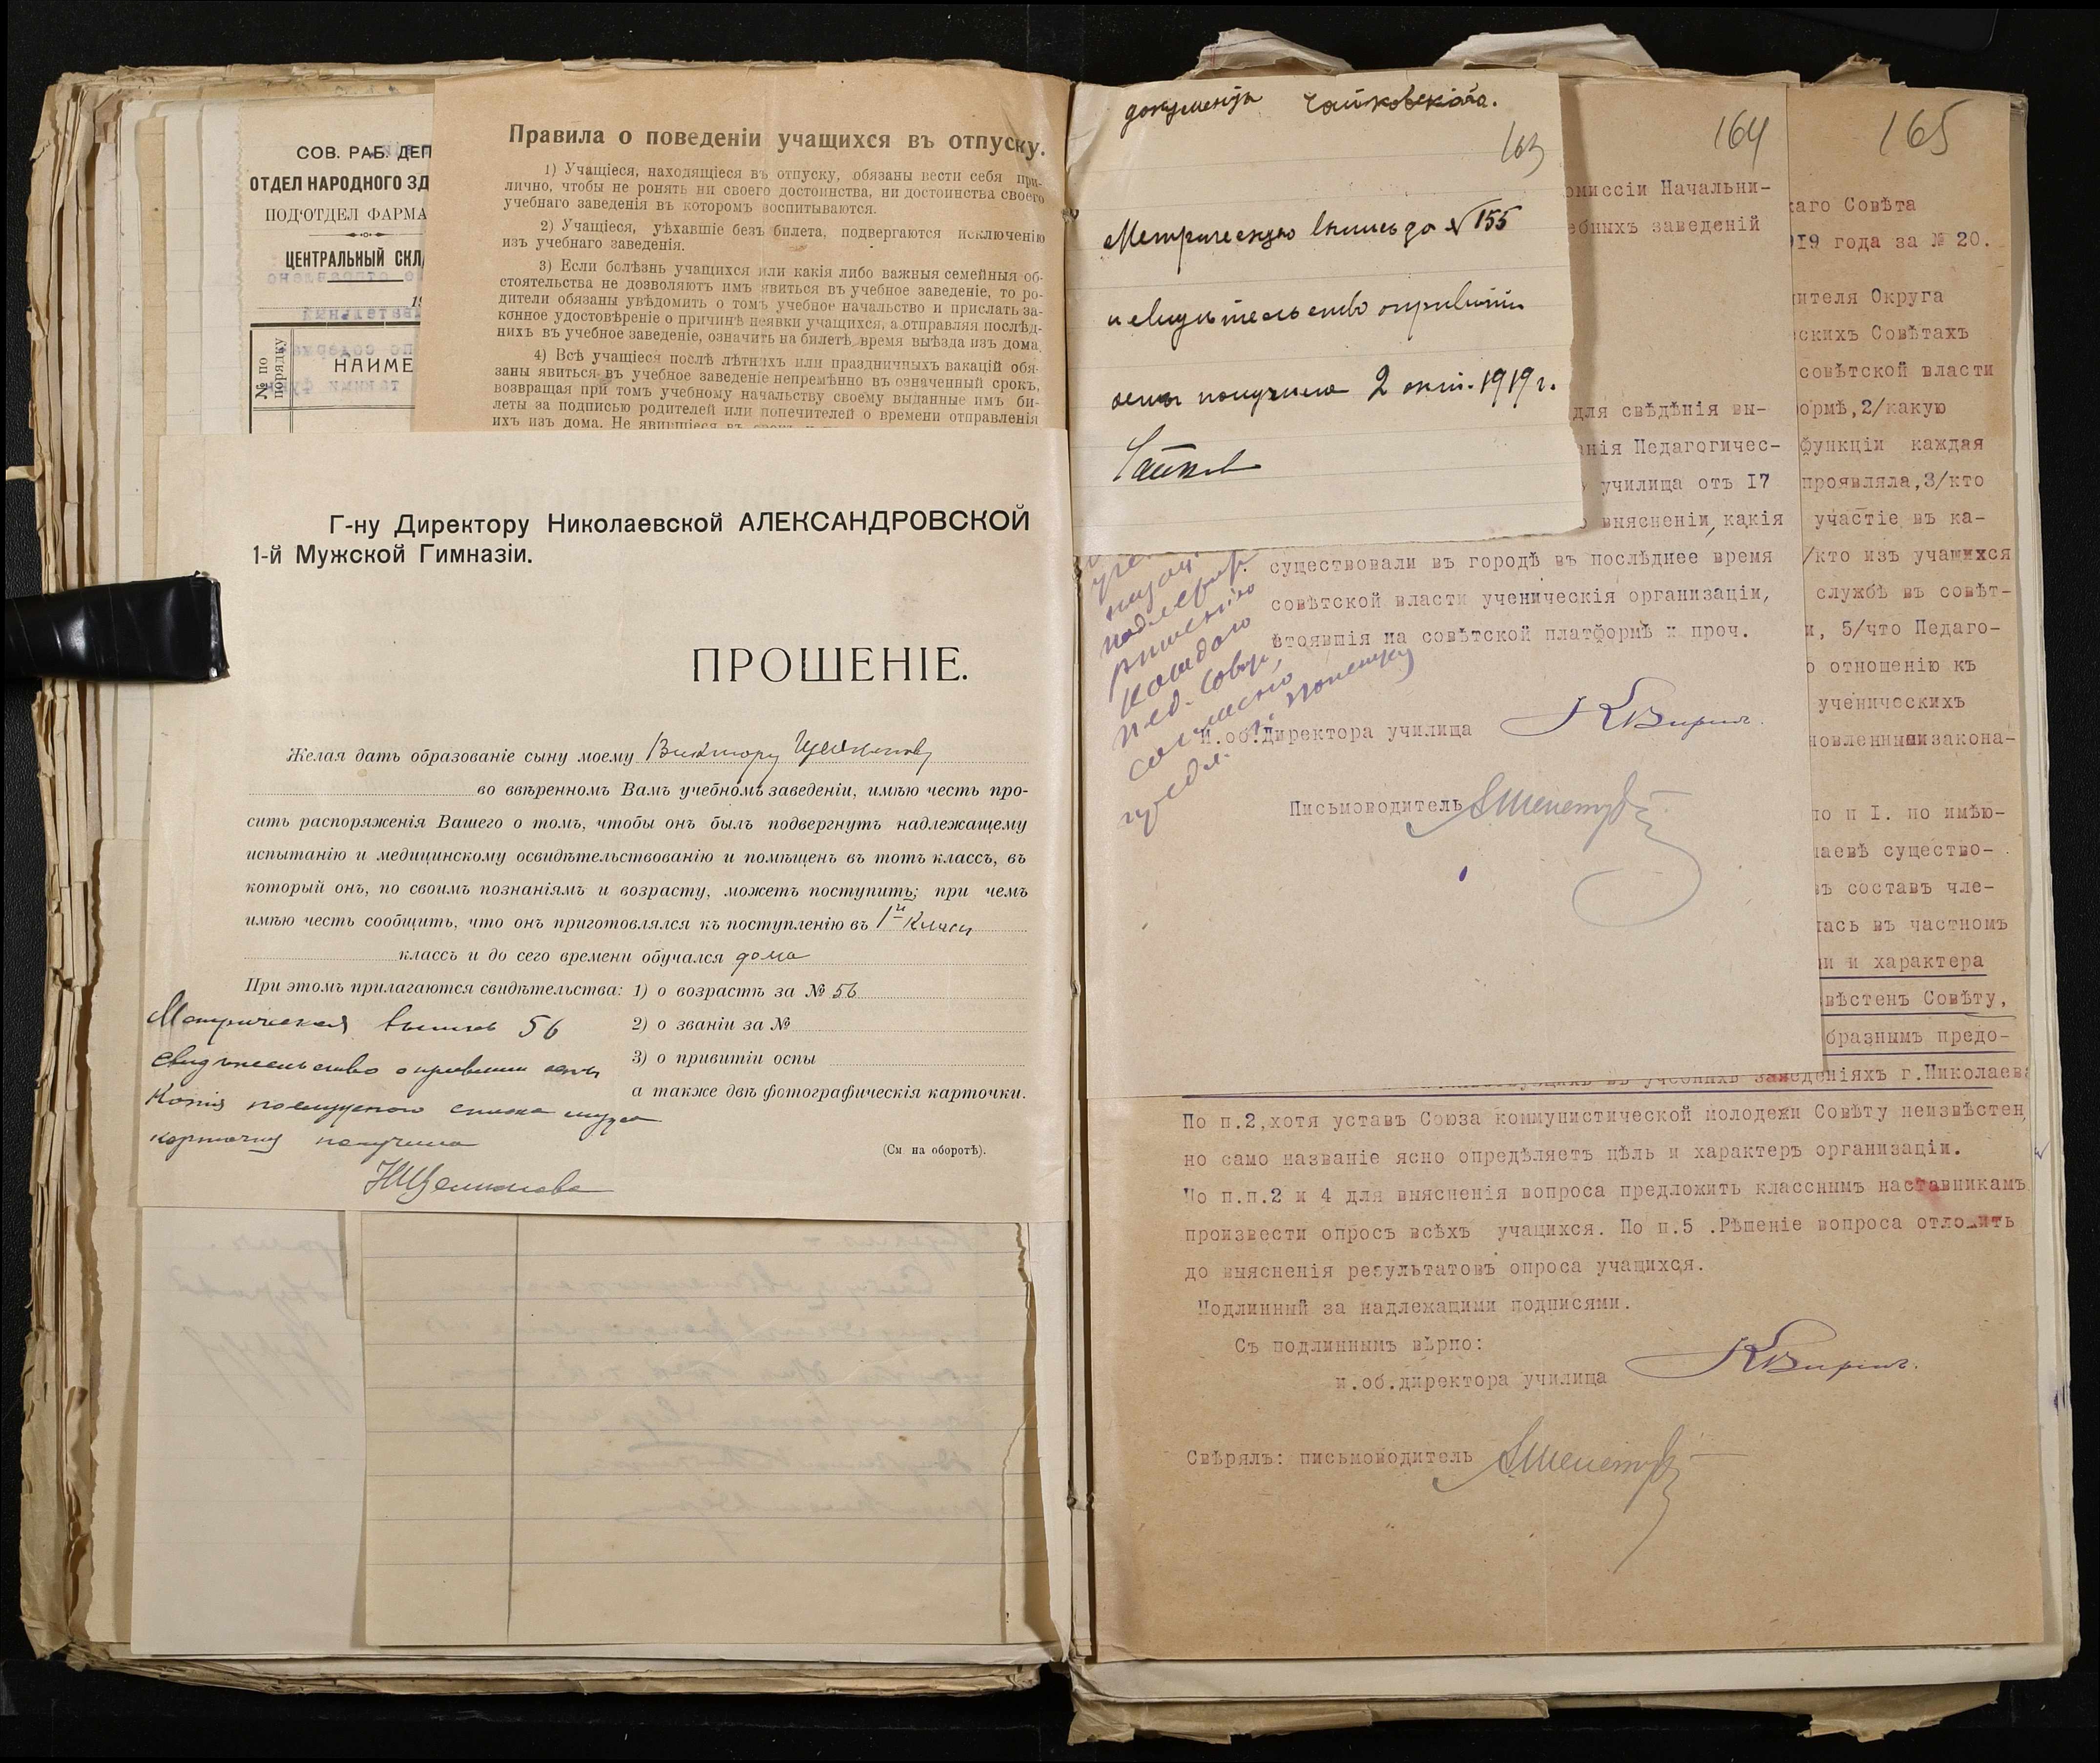 СОВ. РАБ. ДЕП
ОТДЕЛ НАРОДНОГО ЗД
ПОД'ОТДЕЛ ФАРМА
ЦЕНТРАЛЬНЫЙ СКЛ
№ по порядку
НАИМЕ
Правила о поведеніи учащихся въ отпуску.
1) Учащіеся, находящіеся въ отпуску, обязаны вести себя при-
лично, чтобы не ронять ни своего достоинства, ни достоинства своего
учебнаго заведенія въ которомъ воспитываются.
2) Учащіеся, уѣхавшіе безъ билета, подвергаются исключенію
изъ учебнаго заведенія.
3) Если болѣзнь учащихся или какія либо важныя семейныя об-
стоятельства не дозволяютъ имъ явиться въ учебное заведеніе, то ро-
дители обязаны увѣдомить о томъ учебное начальство и прислать за-
конное удостовѣреніе о причинѣ неявки учащихся, а отправляя послѣд-
нихъ въ учебное заведеніе, означить на билетѣ время выѣзда изъ дома.
4) Всѣ учащіеся послѣ лѣтнихъ или праздничныхъ вакацій обя-
заны явиться въ учебное заведеніе непремѣнно въ означенный срокъ,
возвращая при томъ учебному начальству своему выданные имъ би-
леты за подписью родителей или попечителей о времени отправленія
ихъ изъ дома. Не явившіеся въ
Г-ну Директору Николаевской АЛЕКСАНДРОВСКОЙ
1-й Мужской Гимназіи.
ПРОШЕНІЕ.
Желая дать образованіе сыну моему Виктору
во ввѣренномъ Вамъ учебномъ заведеніи, имѣю честь про-
сить распоряженія Вашего о томъ, чтобы онъ былъ подвергнутъ надлежащему
испытанію и медицинскому освидѣтельствованію и помѣщенъ въ тотъ классъ, въ
который онъ, по своимъ познаніямъ и возрасту, можетъ поступить; при чемъ
имѣю честь сообщить, что онъ приготовлялся къ поступленію въ 1й классъ
классъ и до сего времени обучался дома
При этомъ прилагаются свидѣтельства: 1) о возрастѣ за № 56
2) о званіи за №
3) о привитіи оспы
а также двѣ фотографическія карточки.
(См на оборотѣ).
Метрическая выпись 56
свидѣтельство о привитіи оспы
Копія послужного списка мужа
карточку получила
документы Чайковскаго.
163
Метрическую выпись до № 155
и свидѣтельство о привитіи
оспы получила 2 окт. 1919 г.
164
омиссіи Начальни-
ебныхъ заведеній
для свѣдѣнія вы-
нія Педагогичес-
училища отъ 17
о выясненіи, какія
существовали въ городѣ въ послѣднее время
совѣтской власти ученическія организаціи,
стоявшія на совѣтской платформѣ и проч.
и.об.директора училища
Письмоводитель
165
каго Совѣта
919 года за № 20.
ителя Округа
скихъ Совѣтахъ
совѣтской власти
ормѣ, 2/какую
функціи каждая
проявляла, 3/кто
участіе въ ка-
/кто изъ учащихся
службѣ въ совѣт-
и, 5/что Педаго-
о отношенію къ
ученическихъ
новленными закона-
по п I. по имѣю-
лаевѣ существо-
въ составъ чле-
лась въ частномъ
и и характера
вѣстенъ Совѣту,
бразнымъ предо-
въ учебныхъ заведеніяхъ г.Николаева
По п.2, хотя уставъ Союза коммунистической молодежи Совѣту неизвѣстен,
но само названіе ясно опредѣляетъ цѣль и характеръ организаціи.
По п.п.2 и 4 для выясненія вопроса предложить класснымъ наставникамъ
произвести опросъ всѣхъ учащихся. По п.5 .Рѣшеніе вопроса отложить
до выясненія результатовъ опроса учащихся.
Подлинный за надлежащими подписями.
Съ подлиннымъ вѣрно:
и.об.директора училища
Свѣрялъ: письмоводитель